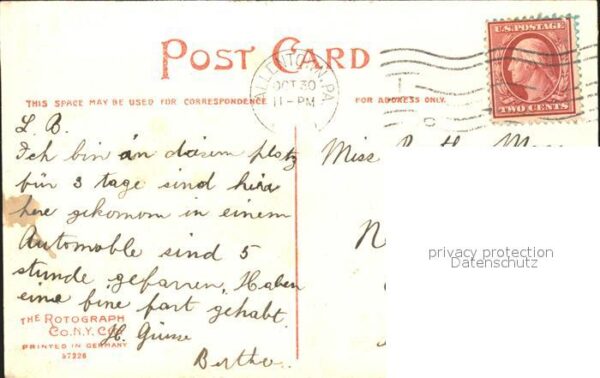 POST CARD
U.S. POSTAGE
TWO CENTS
ALLENTOWN, PA.
OCT 30
11-PM
THIS SPACE MAY BE USED FOR CORRESPONDENCE
FOR ADDRESS ONLY.
L. B.
Ich bin an disem platz
für 3 tage sind hier
here gekomom in einem
Automoble sind 5
stunde gefarren, Haben
eine fine fart gehabt.
H. Grüsse
Bertha.
Miss
THE ROTOGRAPH
CO. N.Y. CITY
PRINTED IN GERMANY
57226
privacy protection
Datenschutz